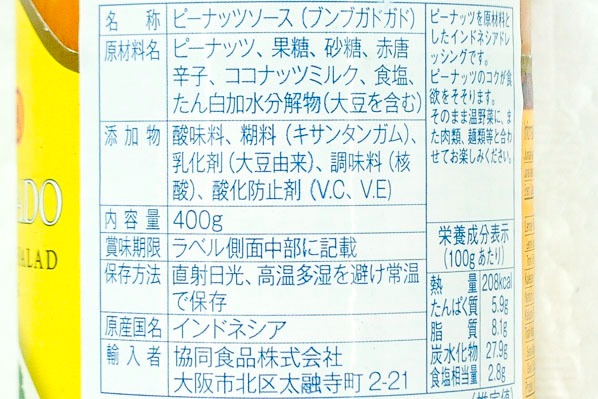 名 称 ピーナッツソース(ブンブガドガド)
原材料名 ピーナッツ、果糖、砂糖、赤唐
辛子、ココナッツミルク、食塩、
たん白加水分解物(大豆を含む)
添加物 酸味料、糊料(キサンタンガム)、
乳化剤(大豆由来)、調味料(核
酸)、酸化防止剤(V.C、V.E)
内容量 400g
賞味期限 ラベル側面中部に記載
保存方法 直射日光、高温多湿を避け常温
で保存
原産国名 インドネシア
輸入者 協同食品株式会社
大阪市北区太融寺町2-21
ピーナッツを原材料と
したインドネシアドレ
ッシングです。
ピーナッツのコクが食
欲をそそります。
そのまま温野菜に、ま
た肉類、麺類等と合わ
せてお楽しみください。
栄養成分表示
(100gあたり)
熱量 208kcal
たんぱく質 5.9g
脂質 8.1g
炭水化物 27.9g
食塩相当量 2.8g
(推定値
ADO
SALAD